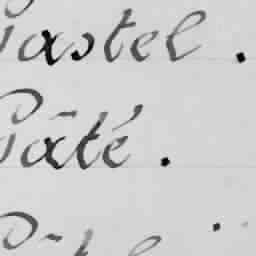 Pastel.
Pâté.